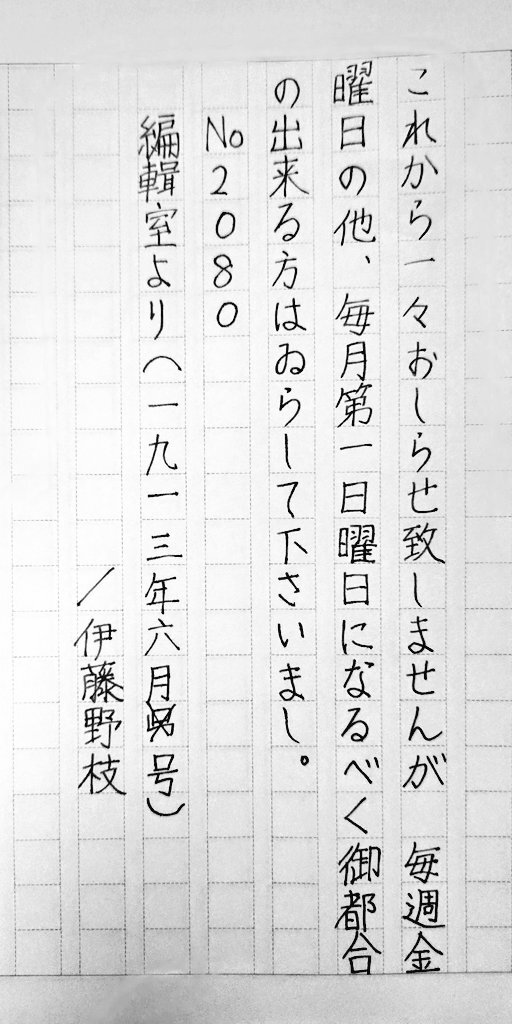 これから一々おしらせ致しませんが　毎週金
曜日の他、毎月第一日曜日になるべく御都合
の出来る方はゐらして下さいまし。
No2080
編輯室より（一九一三年六月号）
／伊藤野枝